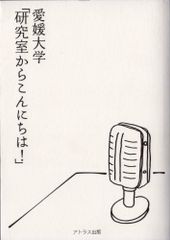 愛媛大学
「研究室からこんにちは！」
アトラス出版